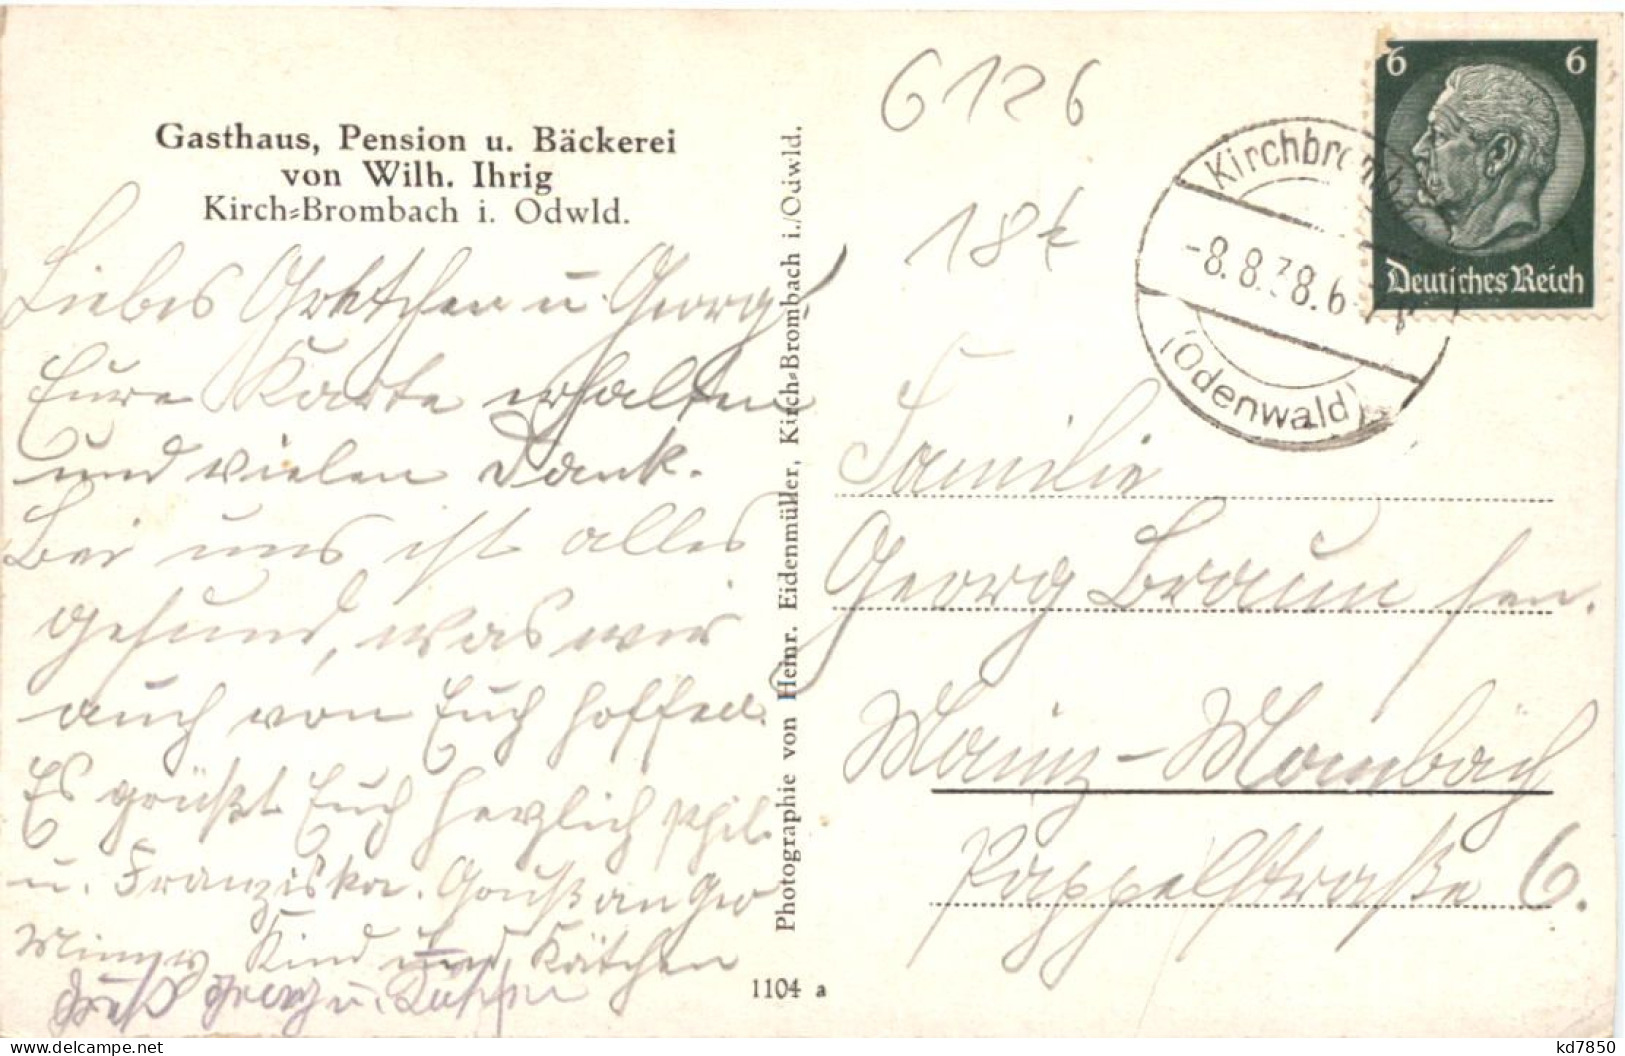 Gasthaus, Pension u. Bäckerei
von Wilh. Ihrig
Kirch-Brombach i. Odwld.
Liebes Gretchen u. Georg!
Eure Karte erhalten
und vielen Dank.
Bei uns ist alles
gesund, was wir
auch von Euch hoffen.
Es grüßt Euch herzlich Phil.
u. Franziska. Gruß an
Kind und Kätchen
Gruß Georg u.
Photographie von Heinr. Eidenmüller, Kirch-Brombach i./Odwld.
1104 a
6126
18
Kirchbrombach
-8.8.38.6
(Odenwald)
6 6
Deutsches Reich
Familie
Georg Braun sen.
Mainz-Mombach
Pappelstraße 6.
kd7850